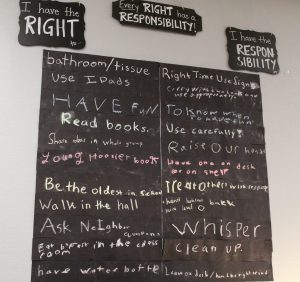 I have the
RIGHT
to
Every RIGHT has a
RESPONSIBILITY!
I have the
RESPON
SIBILITY
bathroom/tissue
Use IPads
HAVE Fun
Read books.
Share ideas in whole group
Young Hoosier book
Be the oldest in school
Walk in the hall
Ask Neighbor
questions
Eat b'fast in the class
room
have water bottle
Right Time Use Signs
use appropriately
To know when
Use carefully!
Raise our hands
have one on desk
or on shelf
Treat others with respect
Whisper
clean up.